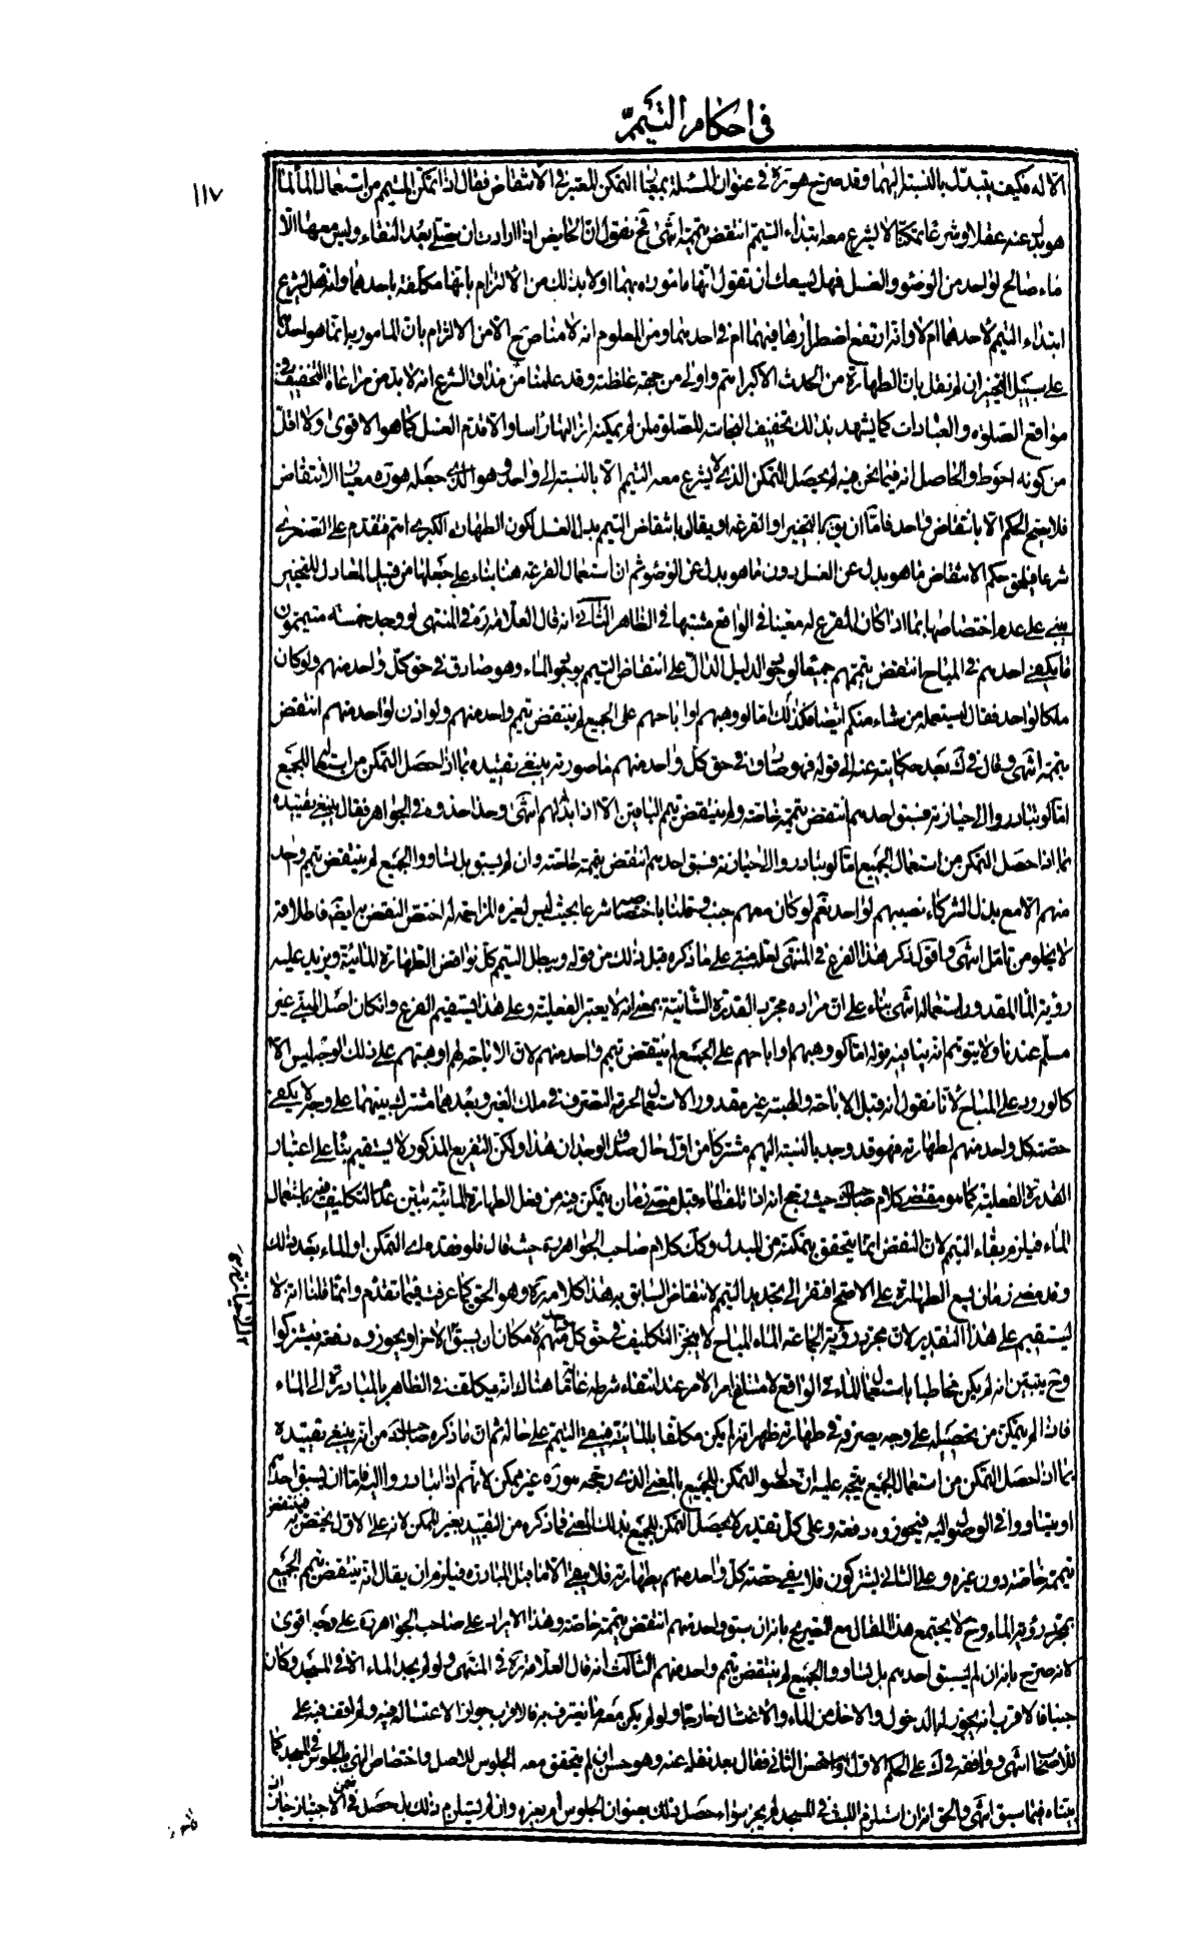 في احكام التيمم
١١٧
الا له فكيف يتبدل بالنسبة اليهما وقد صرح هو ره في عنوان المسئلة بمعنى التمكن المعتبر في الانتقاض فقال اذا تمكن المتيمم من استعمال الماء لما
هو بدل عنه عقلا وشرعا تمكنا لا يشرع معه ابتداء التيمم انتقض تيممه انتهى فح نقول ان الحايض اذا ارادت ان تصلى بعد النقاء وليس معها الا
ماء صالح لواحد من الوضوء والغسل فهل يسعك ان تقول انها مامورة بهما او لا بد لك من الالتزام بانها مكلفة باحدهما وانه هل يشرع
ابتداء التيمم لاحدهما ام لا وانه ارتفع اضطرارها فيهما ام في احدهما ومن المعلوم انه لا مناص ح الا من الالتزام بان المامور به انما هو احدهما
على سبيل التخيير ان لم نقل بان الطهارة من الحدث الاكبر اهم واولى من جهة غلظته وقد علمنا من مذاق الشرع انه لا بد من مراعاة التخفيف في
مواقع الصلوة والعبادات كما يشهد بذلك تخفيف النجاسة للصلوة لمن لم يمكنه ازالتها راسا والا قدم الغسل كما هو الاقوى ولا اقل
من كونه احوط والحاصل انه فيما نحن فيه لم يحصل التمكن الذي لا يشرع معه التيمم الا بالنسبة الى واحد وهو الذي جعله هو ره معيار الانتقاض
فلا يتجه الحكم الا بانتقاض واحد فاما ان يق بالتخيير او القرعة او يقال بانتقاض التيمم بدل الغسل لكون الطهارة الكبرى اهم مقدم على الصغرى
شرعا فيلحق حكم الانتقاض ما هو بدل عن الغسل دون ما هو بدل عن الوضوء ثم ان استعمال القرعة هنا بناء على جعلها من قبيل المعادل للتخيير
يبتنى على عدم اختصاصها بما اذا كان المقرع له معينا في الواقع مشتبها في الظاهر الثاني انه قال العلامة ره في المنتهى لو وجد خمسة متيممون
ما يكفى احدهم في المباح انتقض تيممهم جميعا لوجود الدليل الدال على انتقاض التيمم بوجود الماء وهو صادق في حق كل واحد منهم ولو كان
ملكا لواحد فقال ليستعمله من شاء منكم ايضا فكذلك اما لو وهبهم او اباحهم على الجميع لم ينتقض تيمم واحد منهم ولو اذن لواحد منهم انتقض
تيممه انتهى وقال في ك بعد حكايته عنه الى قوله فهو صادق في حق كل واحد منهم ما صورته ينبغي تقييده بما اذا حصل التمكن من استعمال الجميع
اما لو تبادروا الى حيازته فسبق احدهم انتقض تيممه خاصة ولم ينتقض تيمم الباقين الا اذا بذله لهم انتهى وحذا حذوه في الجواهر فقال ينبغي تقييده
بما اذا حصل التمكن من استعمال الجميع اما لو تبادروا الى حيازته فسبق احدهم انتقض تيممه خاصة وان لم يسبق بل تساووا الجميع لم ينتقض تيمم واحد
منهم الا مع بذل الشركاء نصيبهم لواحد نعم لو كان معهم جنب وقلنا باختصاصه شرعا بحيث ليس لغيره المزاحمة له اختص النقض به ايضا فاطلاقه
لا يخلو من تامل انتهى واقول ذكر هذا الفرع في المنتهى لعله مبتنى على ما ذكره قبل ذلك من قوله ويبطل التيمم كل نواقض الطهارة المائية ويزيد عليه
رؤية الماء المقدور استعماله انتهى بناء على ان مراده مجرد القدرة الشانية بمعنى انه لا يعتبر الفعلية وعلى هذا يستقيم الفرع وان كان اصل المبنى غير
مسلم عندنا ولا يتوهم انه ينافيه قوله اما لو وهبهم او اباحهم على الجميع لم ينتقض تيمم واحد منهم لان الاباحة لهم او هبتهم على ذلك الوجه ليس الا
كالورود على المباح لانا نقول انه قبل الاباحة والهبة غير مقدور الاستعمال لحرمة التصرف في ملك الغير وبعدهما مشترك بينهما على وجه لا يكفى
حصة كل واحد منهم لطهارته فهو قد وجد بالنسبة اليهم مشتركا من اول حال صدق الوجدان هذا ولكن التفريع المذكور لا يستقيم بناء على اعتبار
القدرة الفعلية كما هو مقتضى كلام صاحب ك حيث رجح انه اذا تلف الماء قبل مضى زمان يتمكن فيه من فعل الطهارة المائية تبين عدم التكليف باستعمال
الماء فيلزم بقاء التيمم لان النقض انما يتحقق بتمكنه من المبدل وكك كلام صاحب الجواهر ره حيث قال فلو فقده اي التمكن او الماء بعد ذلك
وقد مضى زمان يسع الطهارة على الاصح افتقر الى تجديد التيمم لانتقاض السابق به هذا كلامه ره وهو الحق كما عرفت فيما تقدم وانما قلنا انه لا
يستقيم على هذا التقدير لان مجرد رؤية الجماعة الماء المباح لا ينجز التكليف في حق كل منهم لامكان ان يسبق الاخر او يحوزوه دفعة فيشتركوا
وح يتبين انه لم يكن مخاطبا باستعمال الماء في الواقع لامتناع امر الامر عند انتفاء شرطه غاية ما هناك انه مكلف في الظاهر بالمبادرة الى الماء
فاذا لم يتمكن من تحصيله على وجه يصرفه في طهارته ظهر انه لم يكن مكلفا بالمائية فيبقى التيمم على حاله ثم ان ما ذكره صاحب ك من انه ينبغي تقييده
بما اذا حصل التمكن من استعمال الجميع يتجه عليه ان حصول التمكن للجميع بالمعنى الذي رجحه هو ره غير ممكن لانهم اذا تبادروا اليه فاما ان يسبق احدهم
او يتساووا في الوصول اليه فيحوزوه دفعة وعلى كل تقدير لا يحصل التمكن للجميع بذلك المعنى فما ذكره من التقييد بغير الممكن لانه على الاول يختص به فينتقض
تيممه خاصة دون غيره وعلى الثاني يشتركون فلا يفى حصة كل واحد منهم بطهارته فلا يبقى الا ما قبل المبادرة فيلزم ان يقال انه ينتقض تيمم الجميع
بمجرد رؤية الماء وح لا يجتمع هذا المقال مع التصريح بانه ان سبق واحد منهم انتقض تيممه خاصة وهذا الايراد على صاحب الجواهر ره على وجه اقوى
لانه صرح بانه ان لم يسبق احدهم بل تساووا الجميع لم ينتقض تيمم واحد منهم الثالث انه قال العلامة ره في المنتهى ولو لم يجد الماء الا في المسجد وكان
جنبا فالاقرب انه يجوز له الدخول والاخذ من الماء والاغتسال خارجا ولو لم يكن معه ما يغترف به فالاقرب جواز الاغتسال فيه ولم اقف فيه على
للاصحاب انتهى ووافقه في ك على الحكم الاول واستحسن الثاني فقال بعد نقله عنه وهو حسن ان لم يتحقق معه الجلوس للاصل واختصاص النهي بالجلوس في المسجد كما
بيناه فيما سبق انتهى والحق انه ان استلزم اللبث في المسجد لم يجز سواء حصل ذلك بعنوان الجلوس ام بغيره وان لم يستلزم ذلك بل حصل في ضمن الاجتياز جاز لانه